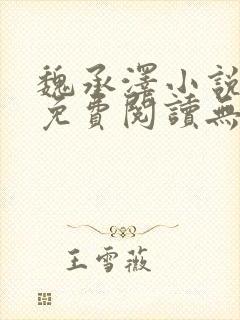 魏承澤小說
免費閱讀無
王雪薇